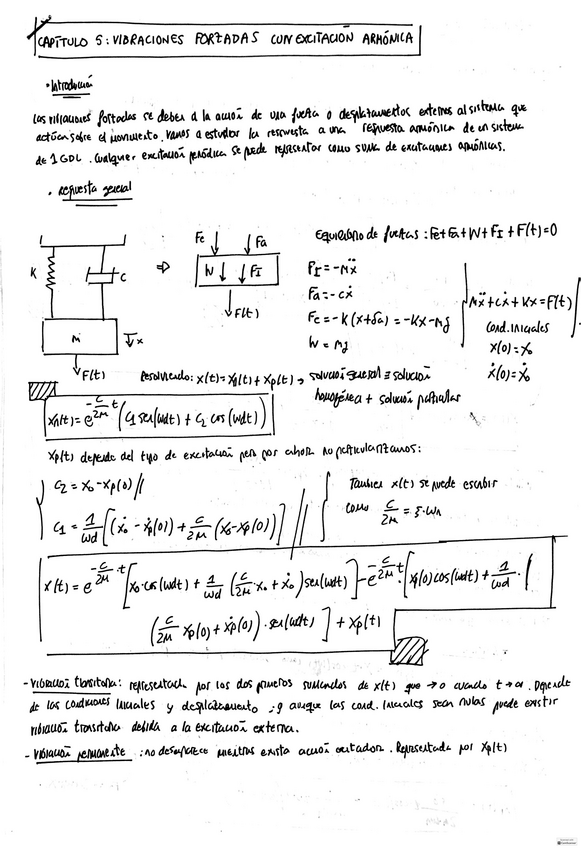 CAPÍTULO 5: VIBRACIONES FORZADAS CON EXCITACIÓN ARMÓNICA
· Introducción
Las vibraciones forzadas se deben a la acción de una fuerza o desplazamientos externos al sistema que
actúan sobre el movimiento. Vamos a estudiar la respuesta a una respuesta armónica de un sistema
de 1 GDL. Cualquier excitación periódica se puede representar como suma de excitaciones armónicas.
· Respuesta general
K
C
M
x
F(t)
⇒
Fe Fa
W FI
F(t)
Equilibrio de fuerzas: Fe+Fa+W+FI+F(t)=0
FI=-Mẍ
Fa=-cẋ
Fe=-K(x+δa)=-Kx-Mg
W=Mg
Mẍ+cẋ+Kx=F(t)
Cond. iniciales
x(0)=x₀
ẋ(0)=ẋ₀
Resolviendo: x(t)=xh(t)+xp(t) → solución general ≡ solución
homogénea + solución particular
xh(t)=e^(-c/2M t) (C₁ sen(wdt) + C₂ cos(wdt))
xp(t) depende del tipo de excitación pero por ahora no particularizamos:
C₂ = x₀-xp(0) //
C₁ = 1/wd [(ẋ₀-ẋp(0)) + c/2M (x₀-xp(0))] //
También x(t) se puede escribir
como c/2M = ξ·wn
x(t)=e^(-c/2M·t) [x₀·cos(wdt) + 1/wd (c/2M x₀+ẋ₀) sen(wdt)] - e^(-c/2M t)·[xp(0)cos(wdt) + 1/wd ·
(c/2M xp(0)+ẋp(0))·sen(wdt)] + xp(t)
- Vibración transitoria: representada por los dos primeros sumandos de x(t) que →0 cuando t→∞. Depende
de las condiciones iniciales y desplazamiento ; y aunque las cond. iniciales sean nulas puede existir
vibración transitoria debida a la excitación externa.
- Vibración permanente: no desaparece mientras exista acción excitadora. Representada por xp(t)